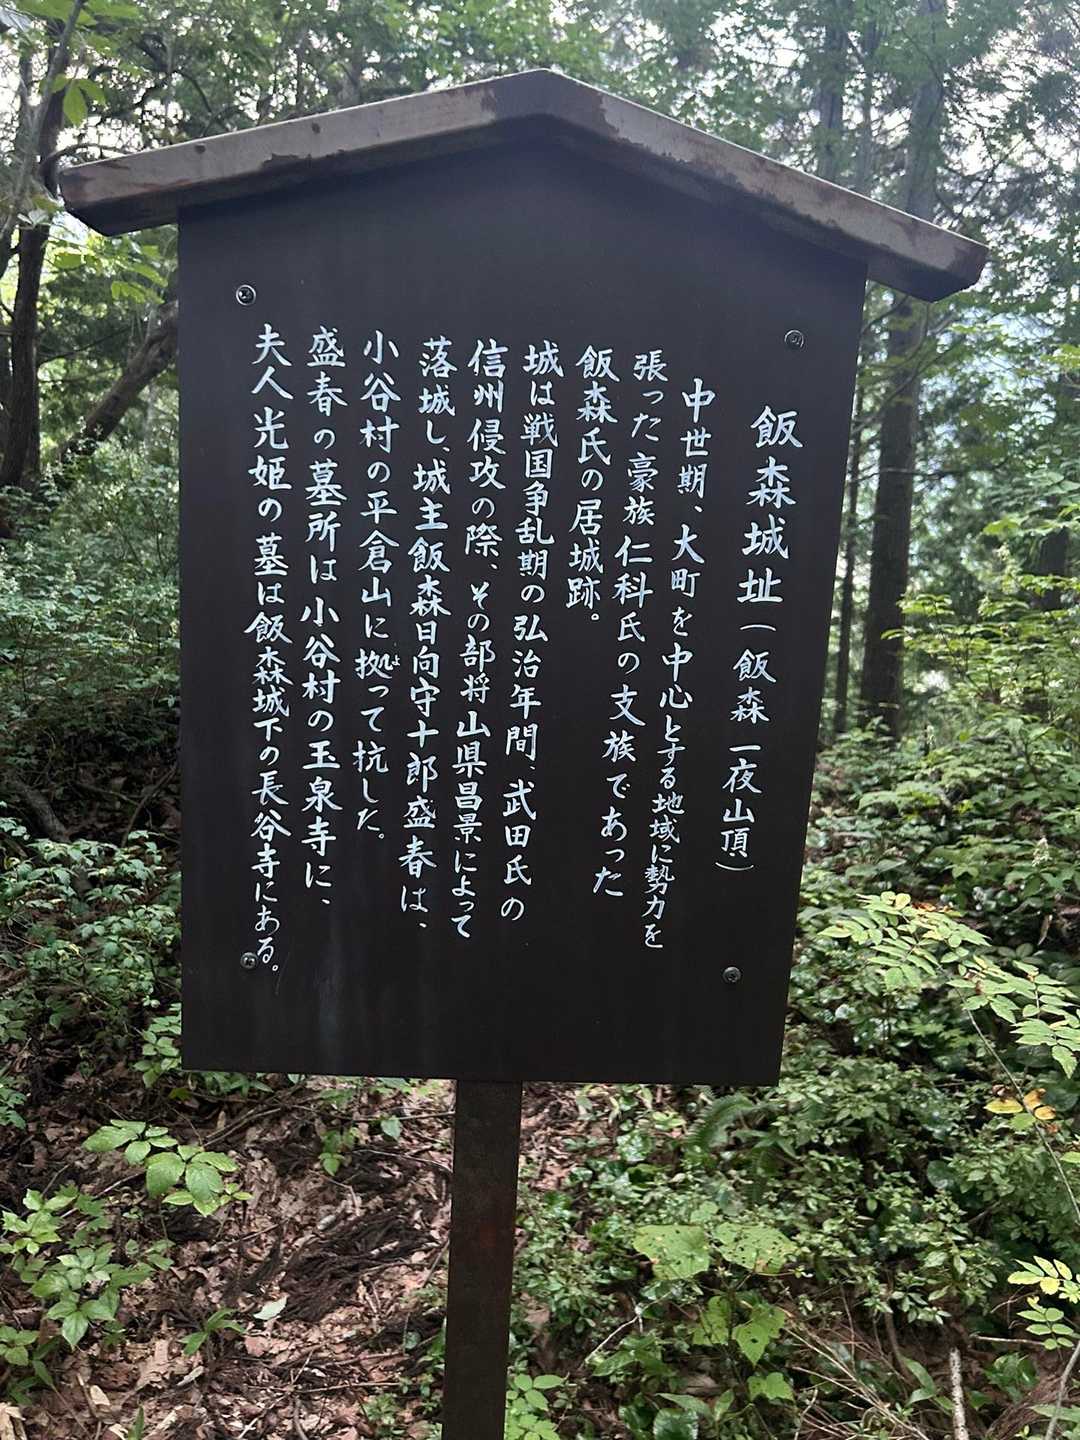 飯森城址(飯森 一夜山頂)
中世期、大町を中心とする地域に勢力を
張った豪族仁科氏の支族であった
飯森氏の居城跡。
城は戦国争乱期の弘治年間、武田氏の
信州侵攻の際、その部将山県昌景によって
落城し、城主飯森日向守十郎盛春は、
小谷村の平倉山に拠よって抗した。
盛春の墓所は小谷村の玉泉寺に、
夫人光姫の墓は飯森城下の長谷寺にある。